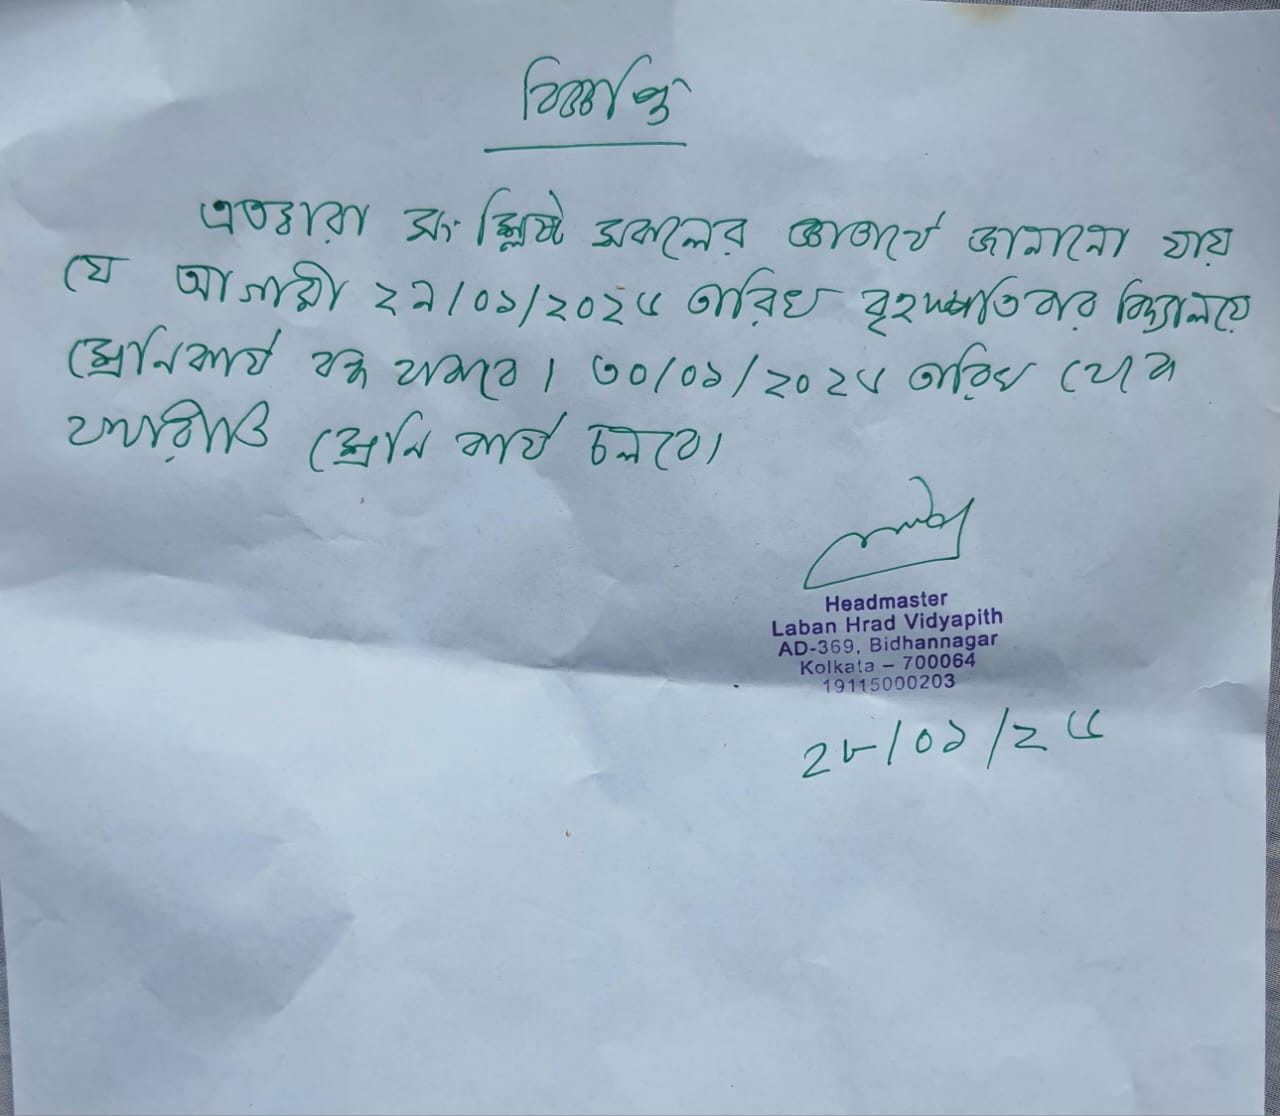 বিজ্ঞপ্তি
এতদ্বারা সংশ্লিষ্ট সকলের জ্ঞাতার্থে জানানো যায়
যে আগামী ২৯/০১/২০২৫ তারিখ বৃহস্পতিবার বিদ্যালয়ে
শ্রেনিকার্য বন্ধ থাকবে। ৩০/০১/২০২৫ তারিখ থেকে
যথারীতি শ্রেনি কার্য চলবে।
Headmaster
Laban Hrad Vidyapith
AD-369, Bidhannagar
Kolkata – 700064
19115000203
২৮/০১/২৫